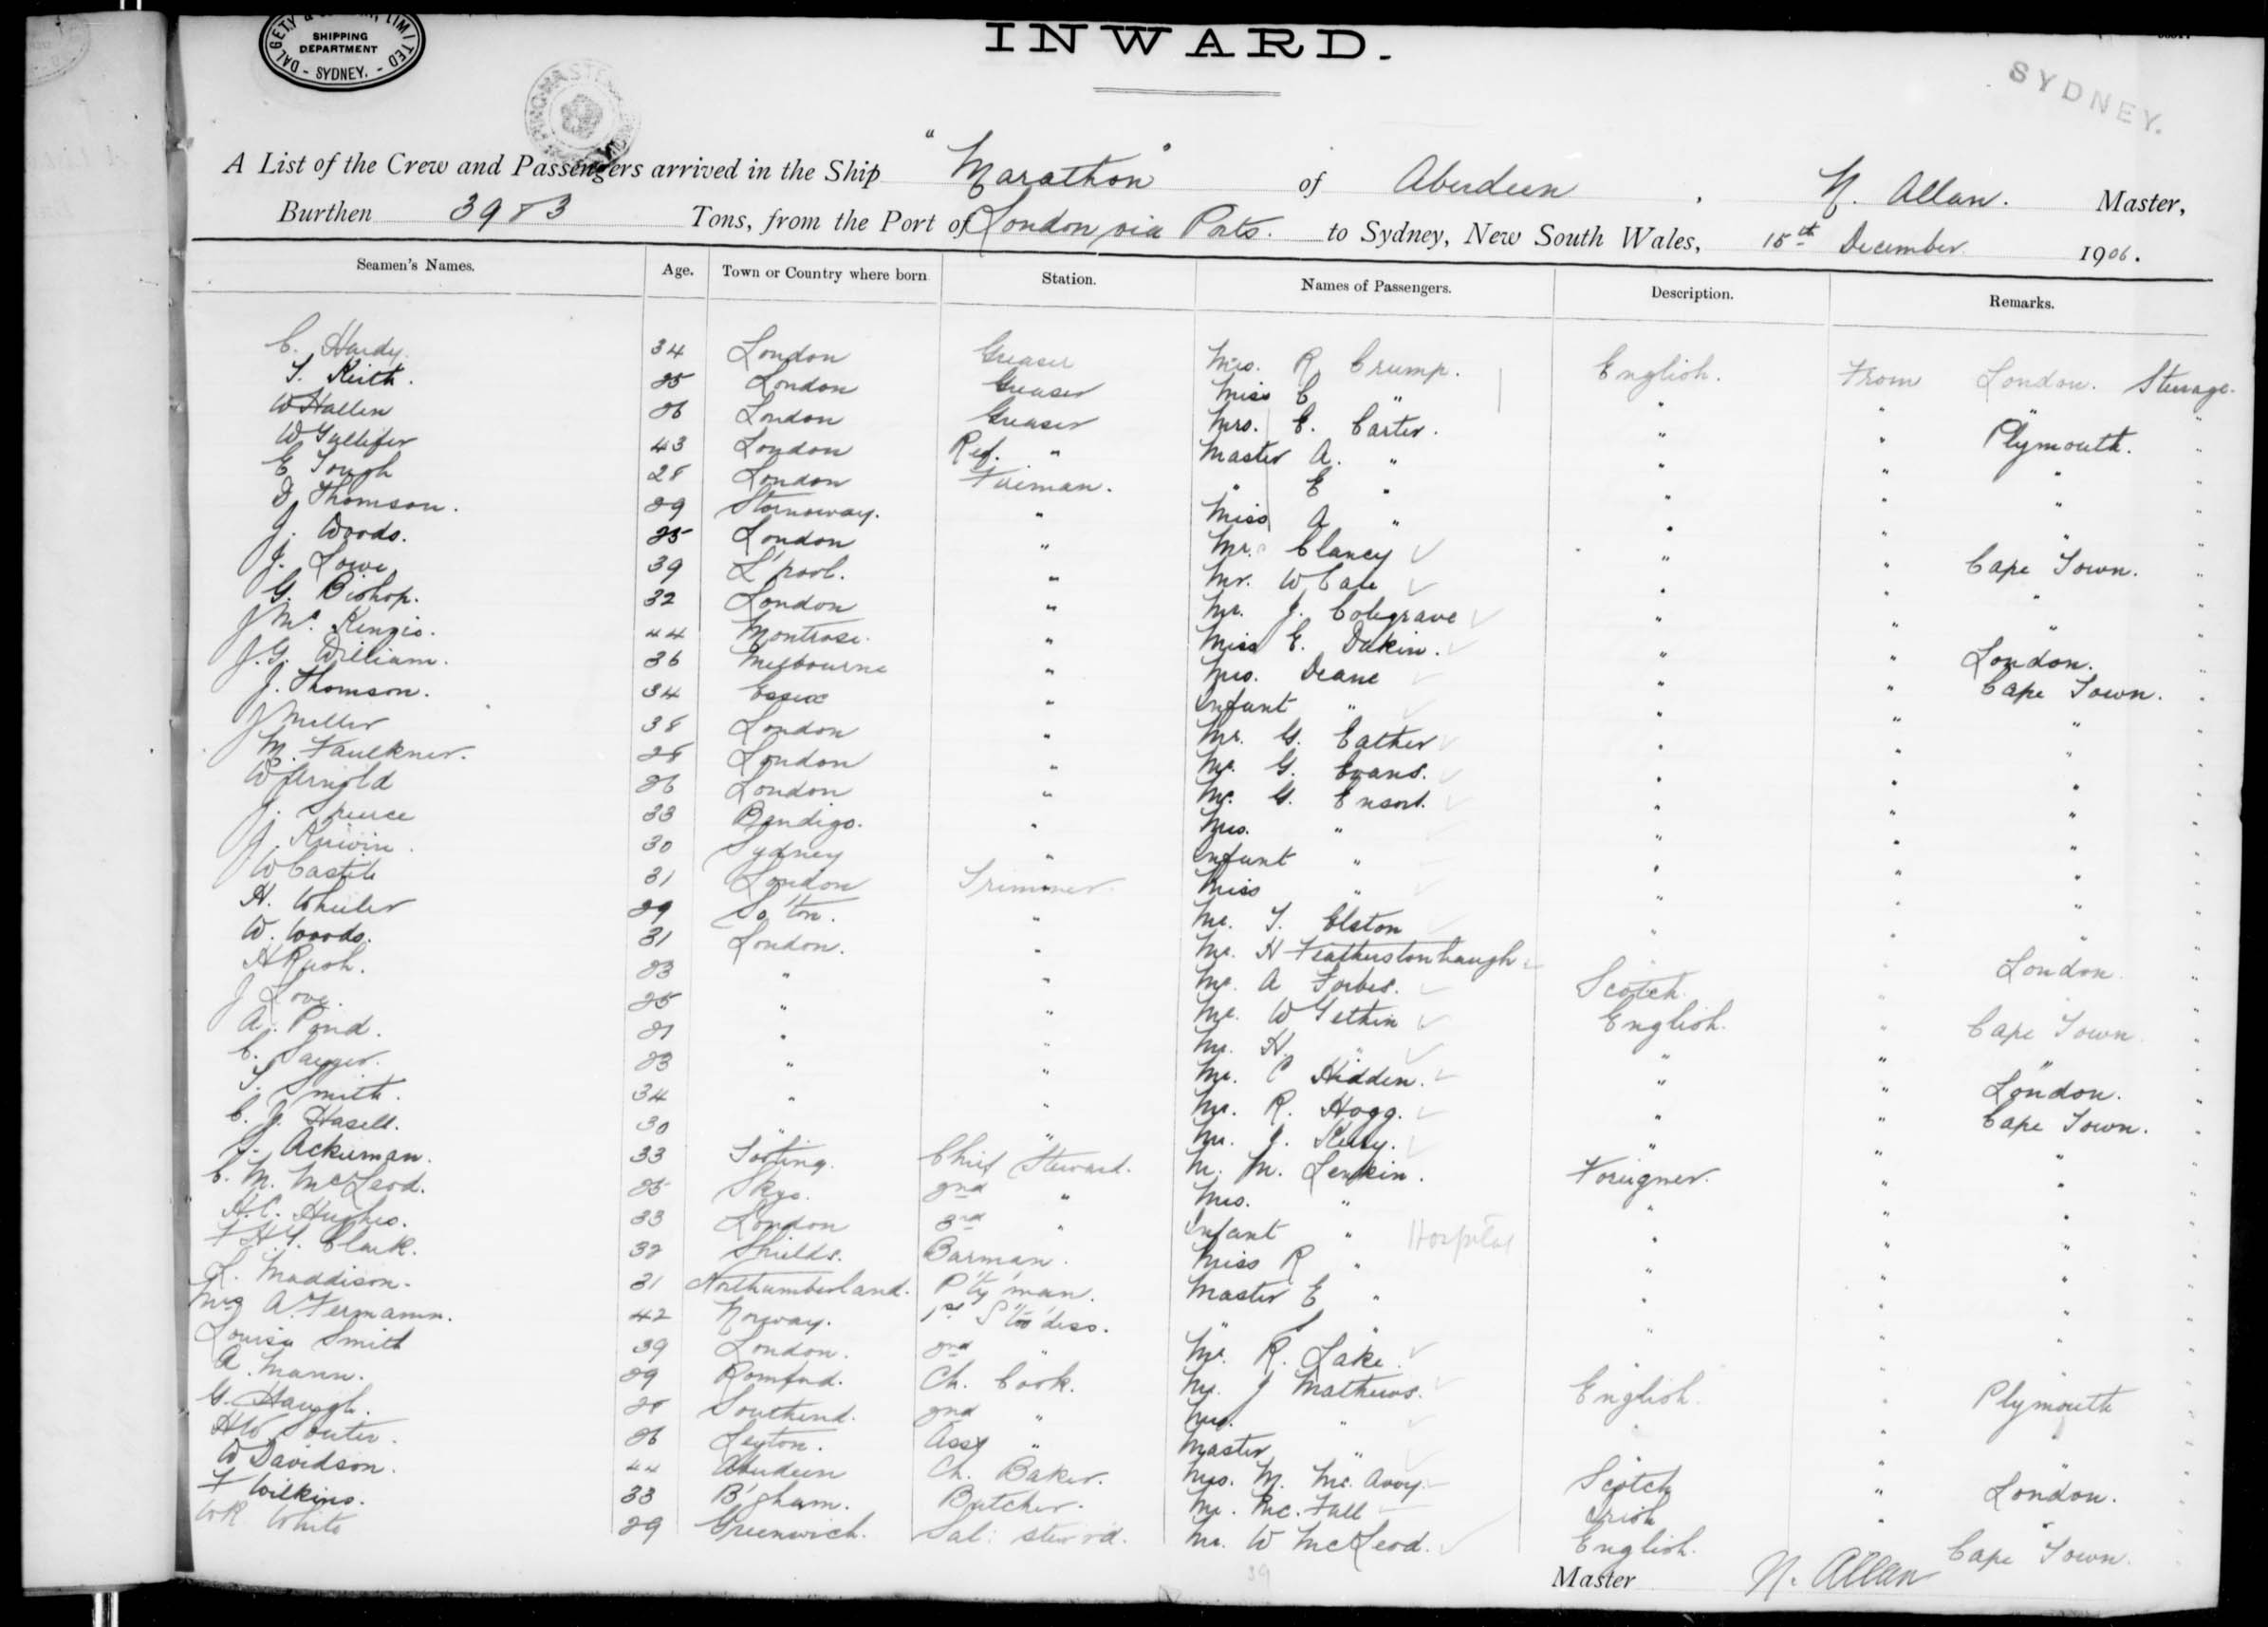 DALGETY & LIMITED
SHIPPING
DEPARTMENT
- SYDNEY. -
INWARD.
SYDNEY.
A List of the Crew and Passengers arrived in the Ship "Marathon" of Aberdeen, N. Allan. Master,
Burthen 3983 Tons, from the Port of London via Ports. to Sydney, New South Wales, 15th December 1906.
Seamen's Names. Age. Town or Country where born Station. Names of Passengers. Description. Remarks.
C. Hardy. 34 London Greaser Mrs. R Crump. English. From London. Steerage.
T. Keith. 25 London Greaser Miss C " " " " "
W Hallen 26 London Greaser Mrs. E. Carter. " " Plymouth. "
W Gullifer 43 London Ref. " Master A. " " " " "
E Tough 28 London Fireman. " E " " " " "
D Thomson. 29 Stornoway. " Miss A " " " " "
J. Woods. 25 London " Mr. Clancy " " Cape Town. "
J. Lowe 39 L'pool. " Mr. W Cale " " " "
G. Bishop. 32 London " Mr. J. Colegrave " " " "
J McKenzie. 44 Montrose. " Miss E. Dakin. " " London. "
J. G. William. 36 Melbourne " Mrs. Deane " " Cape Town. "
J. Thomson. 34 Essex " Infant " " " " "
J Miller 38 London " Mr. G. Eather " " " "
M. Faulkner. 28 London " Mr. G. Evans. " " " "
W Arnold 26 London " Mr. G. Ensor. " " " "
J. Spence 33 Bendigo. " Mrs. " " " " "
J. Kirwin. 30 Sydney " Infant " " " " "
W Castle 31 London Trimmer. Miss " " " " "
H. Wheeler 29 So'ton. " Mr. T. Elston " " " "
W. Woods. 31 London. " Mr. H Featherstonhaugh " " London "
H Rush. 23 " " Mr. A Forbes. Scotch. " "
J Love. 25 " " Mr. W Gethin English. " Cape Town "
A. Pond. 21 " " Mr. H. " " " " "
C. Sayger. 23 " " Mr. C Hidden. " " London. "
T. Smith. 34 " " Mr. R. Hogg. " " Cape Town. "
C. J. Hasell. 30 " " Mr. J. Kelly. " " " "
Ackerman. 33 Tooting. Chief Steward. M. M. Lenkin. Foreigner. " " "
C. M. McLeod. 25 Skye. 2nd " Mrs. " " " " "
H. C. Hughes. 33 London 3rd " Infant " Hospital " " " "
F H. G. Clark. 32 Shields. Barman. Miss R " " " " "
L. Maddison. 31 Northumberland. P'ty man. Master E " " " " "
Mrs A. Fermann. 42 Norway. 1st St'dess. " " " " "
Louisa Smith 39 London. 2nd " Mr. R. Lake. " " "
A. Mann. 29 Romford. Ch. Cook. Mr. J Mathews. English. " Plymouth "
G. Haugh. 28 Southend. 2nd " Mrs. " " " " "
H W Souter. 26 Leyton. Asst " Master " " " " "
W Davidson. 44 Aberdeen Ch. Baker. Mrs. M. McAvoy. Scotch " London. "
F Wilkins. 33 B'gham. Butcher. Mr. McFall Irish " "
W R White 29 Greenwich. Sal: stew'd. Mr. W McLeod. English. Cape Town.
39
Master N. Allan